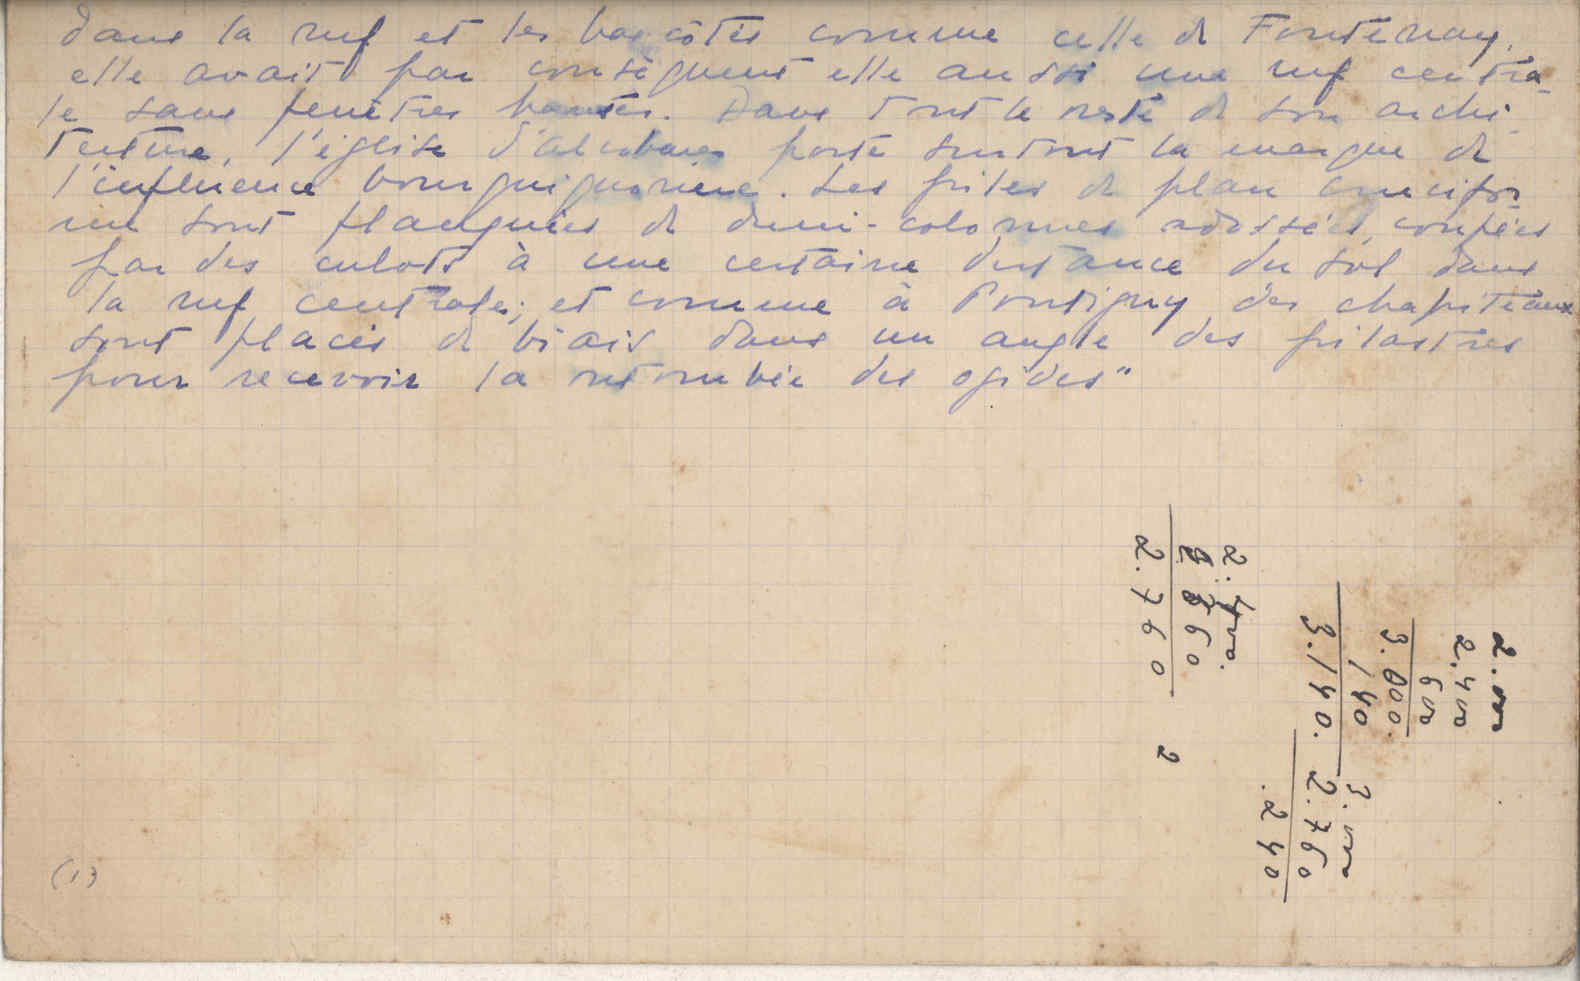 dans la nef et les bas côtés comme celle de Fontenay,
elle avait par conséquent elle aussi une nef centra-
le sans fenêtres hautes. Dans tout le reste de son archi-
tecture, l'église d'Alcobaça porte surtout la marque de
l'influence bourguignonne. Les piles de plan crucifor-
me sont flanquées de demi-colonnes adossées, coupées
par des culots à une certaine distance du sol dans
la nef centrale; et comme à Pontigny, des chapiteaux
sont placés de biais dans un angle des pilastres
pour recevoir la retombée des ogives"
2.
2.400
600
3.000.
140
3.140.
3.000
2.760
.240
2.
2.760
2
(1)